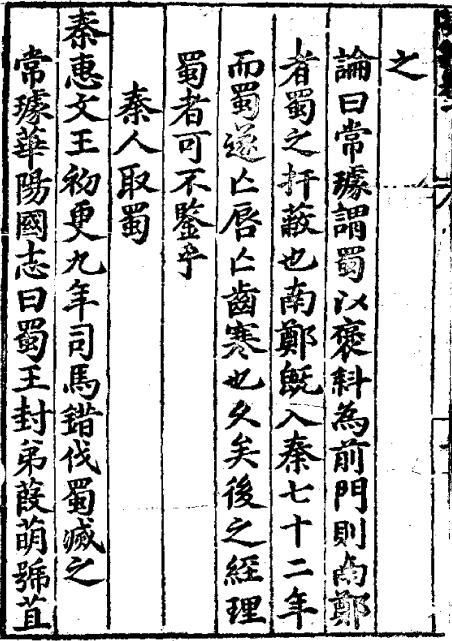 之
論曰常璩謂蜀以褒斜為前門則南鄭
者蜀之扞蔽也南鄭既入秦七十二年
而蜀遂亡唇亡齒寒也久矣後之經理
蜀者可不鑒乎
秦人取蜀
秦惠文王初更九年司馬錯伐蜀滅之
常璩華陽國志曰蜀王封弟葭萌號苴